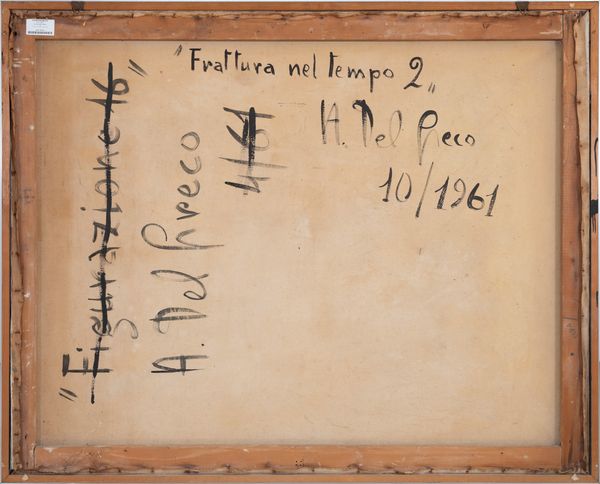 "Frattura nel tempo 2"
A. Del Greco
10/1961
"Figurazione 16"
A. Del Greco
4/61